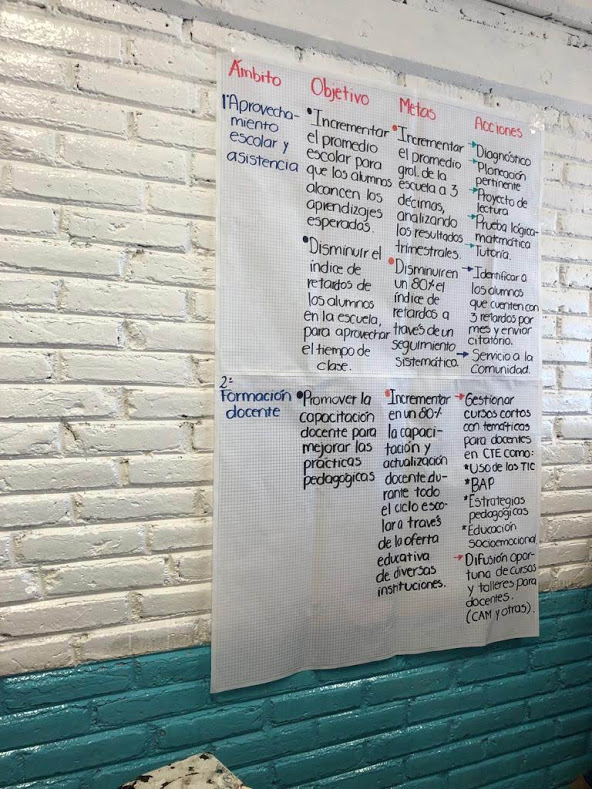 Ámbito
Objetivo
Metas
Acciones
1° Aprovecha-
miento
escolar y
asistencia
• Incrementar
el promedio
escolar para
que los alumnos
alcancen los
aprendizajes
esperados.
• Disminuir el
índice de
retardos de
los alumnos
en la escuela,
para aprovechar
el tiempo de
clase.
• Incrementar
el promedio
gral. de la
escuela a 3
décimas,
analizando
los resultados
trimestrales.
• Disminuir en
un 80% el
índice de
retardos a
través de un
seguimiento
sistemático.
→ Diagnóstico
→ Planeación
pertinente
→ Proyecto de
lectura
→ Prueba lógica-
matemática
→ Tutoría.
→ Identificar a
los alumnos
que cuenten con
3 retardos por
mes y enviar
citatorio.
→ Servicio a la
comunidad.
2°
Formación
docente
• Promover la
capacitación
docente para
mejorar las
prácticas
pedagógicas
• Incrementar
en un 80%
la capaci-
tación y
actualización
docente du-
rante todo
el ciclo esco-
lar a través
de la oferta
educativa
de diversas
instituciones.
→ Gestionar
cursos cortos
con temáticas
para docentes
en CTE como:
* Uso de las TIC
* BAP
* Estrategias
pedagógicas
* Educación
socioemocional
→ Difusión opor-
tuna de cursos
y talleres para
docentes.
(CAM y otras).